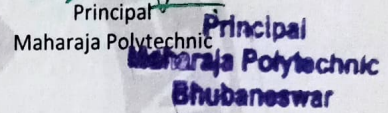 Principal
Maharaja Polytechnic
Principal
Maharaja Polytechnic
Bhubaneswar